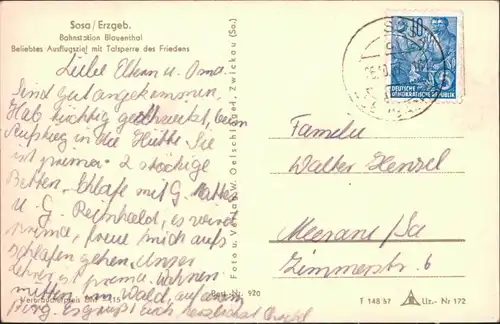 Sosa / Erzgeb.
Bahnstation Blauenthal
Beliebtes Ausflugsziel mit Talsperre des Friedens
Liebe Eltern u. Oma
Sind gut angekommen.
Hab tüchtig geschwitzt, beim
Aufstieg in die Hütte. Sie
ist prima. 2 stöckige
Betten. Schlafe mit G.
u. G. Reinhold, es wird
prima, freue mich aufs
schlafen gehen. Unser
Lehrer ist prima. Wohnen
mitten im Wald, auf einem
Berg. Es grüßt Euch herzlichst
Verbraucherpreis DM
Best.-Nr. 92a
Foto u. Verlag W. Oelschlägel, Zwickau (Sa.)
SOSA
10
DEUTSCHE
DEMOKRATISCHE REPUBLIK
Familie
Walter Henzel
Meerane/Sa
Zimmerstr. 6
T 148 57
Liz.-Nr 172